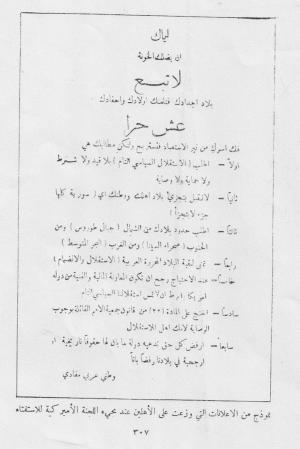 اياك
ان يضلك الخونة
لا تبع
بلاد اجدادك فتلعنك اولادك واحفادك
عش حرا
فك اسرك من نير الاستعباد فتستريح ولتكن مطاليبك هي
اولاً – اطلب (الاستقلال السياسي التام) بلا قيد ولا شرط
ولا حماية ولا وصاية
ثانياً – لا تقبل بتجزئ بلاد اهلك ووطنك اي (سورية كلها
جزء لا يتجزأ)
ثالثاً – اطلب حدود بلادك من الشمال (جبال طوروس) ومن
الجنوب (صحراء السينا) ومن الغرب (البحر المتوسط)
رابعاً – تمنى لبقية البلاد المحررة العربية (الاستقلال والانضمام)
خامساً – عند الاحتياج رجح ان تكون المعاونة المالية والفنية من دولة
اميركا بشرط ان لا تمس استقلالنا السياسي التام
سادساً – احتج على المادة (٢٢) من قانون جمعية الامم القائلة بوجوب
الوصاية لانك اهل للاستقلال
سابعاً – ارفض كل حق تدعيه دولة ما بان لها حقوقاً تاريخية او
ارجحية في بلادنا رفضاً باتاً
وطني عربي مفادي
نموذج من الاعلانات التي وزعت على الأهلين عند مجيء اللجنة الأميركية للاستفتاء
٣٠٧